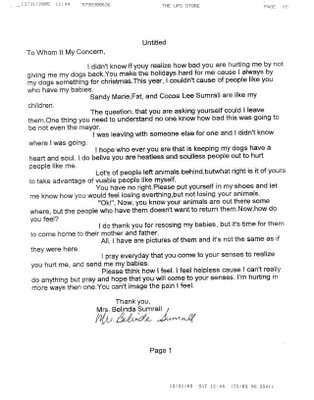 12/31/2005 11:44
THE UPS STORE
Untitled
To Whom It My Concern,
I didn't know if your realize how bad you are hurting me by not
giving me my dogs back.You make the holidays hard for me cause I always by
my dogs something for christmas.This year, I couldn't cause of people like you
who have my babies.
Sandy Marie,Fat, and Cocoa Lee Sumrall are like my
children.
The question, that you are asking yourself could I leave
them.One thing you need to understand no one know how bad this was going to
be not even the mayor.
I was leaving with someone else for one and I didn't know
where I was going.
I hope who ever you are that is keeping my dogs have a
heart and soul. I do belive you are heatless and soulless people out to hurt
people like me.
Lot's of people left animals behind,butwhat right is it of yours
to take advantage of vuable people like myself.
You have no right.Please put yourself in my shoes and let
me know how you would feel losing everthing,but not losing your animals.
"Ok!", Now, you know your animals are out there some
where, but the people who have them doesn't want to return them.Now,how do
you feel?
I do thank you for resosing my babies, but it's time for them
to come home to their mother and father.
All, I have are pictures of them and it's not the same as if
they were here.
I pray everyday that you come to your senses to realize
you hurt me, and send me my babies.
Please think how I feel. I feel helpless cause I can't really
do anything but pray and hope that you will come to your senses. I'm hurting in
more ways then one.You can't image the pain I feel.
Thank you,
Mrs. Belinda Sumrall
Mrs Belinda Sumrall
Page 1